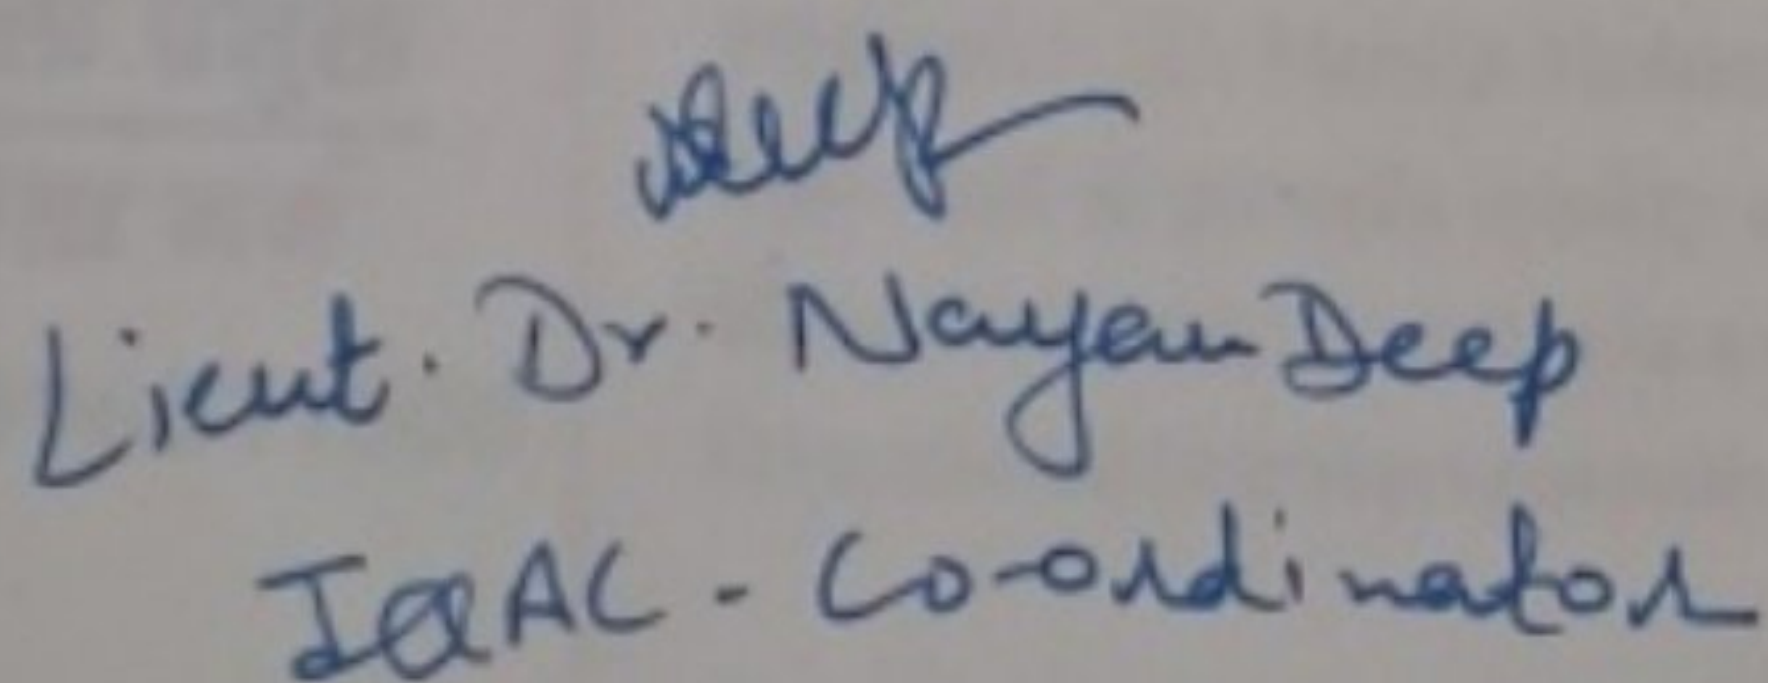 Deep
Lieut. Dr. Nayan Deep
IQAC - Co-ordinator